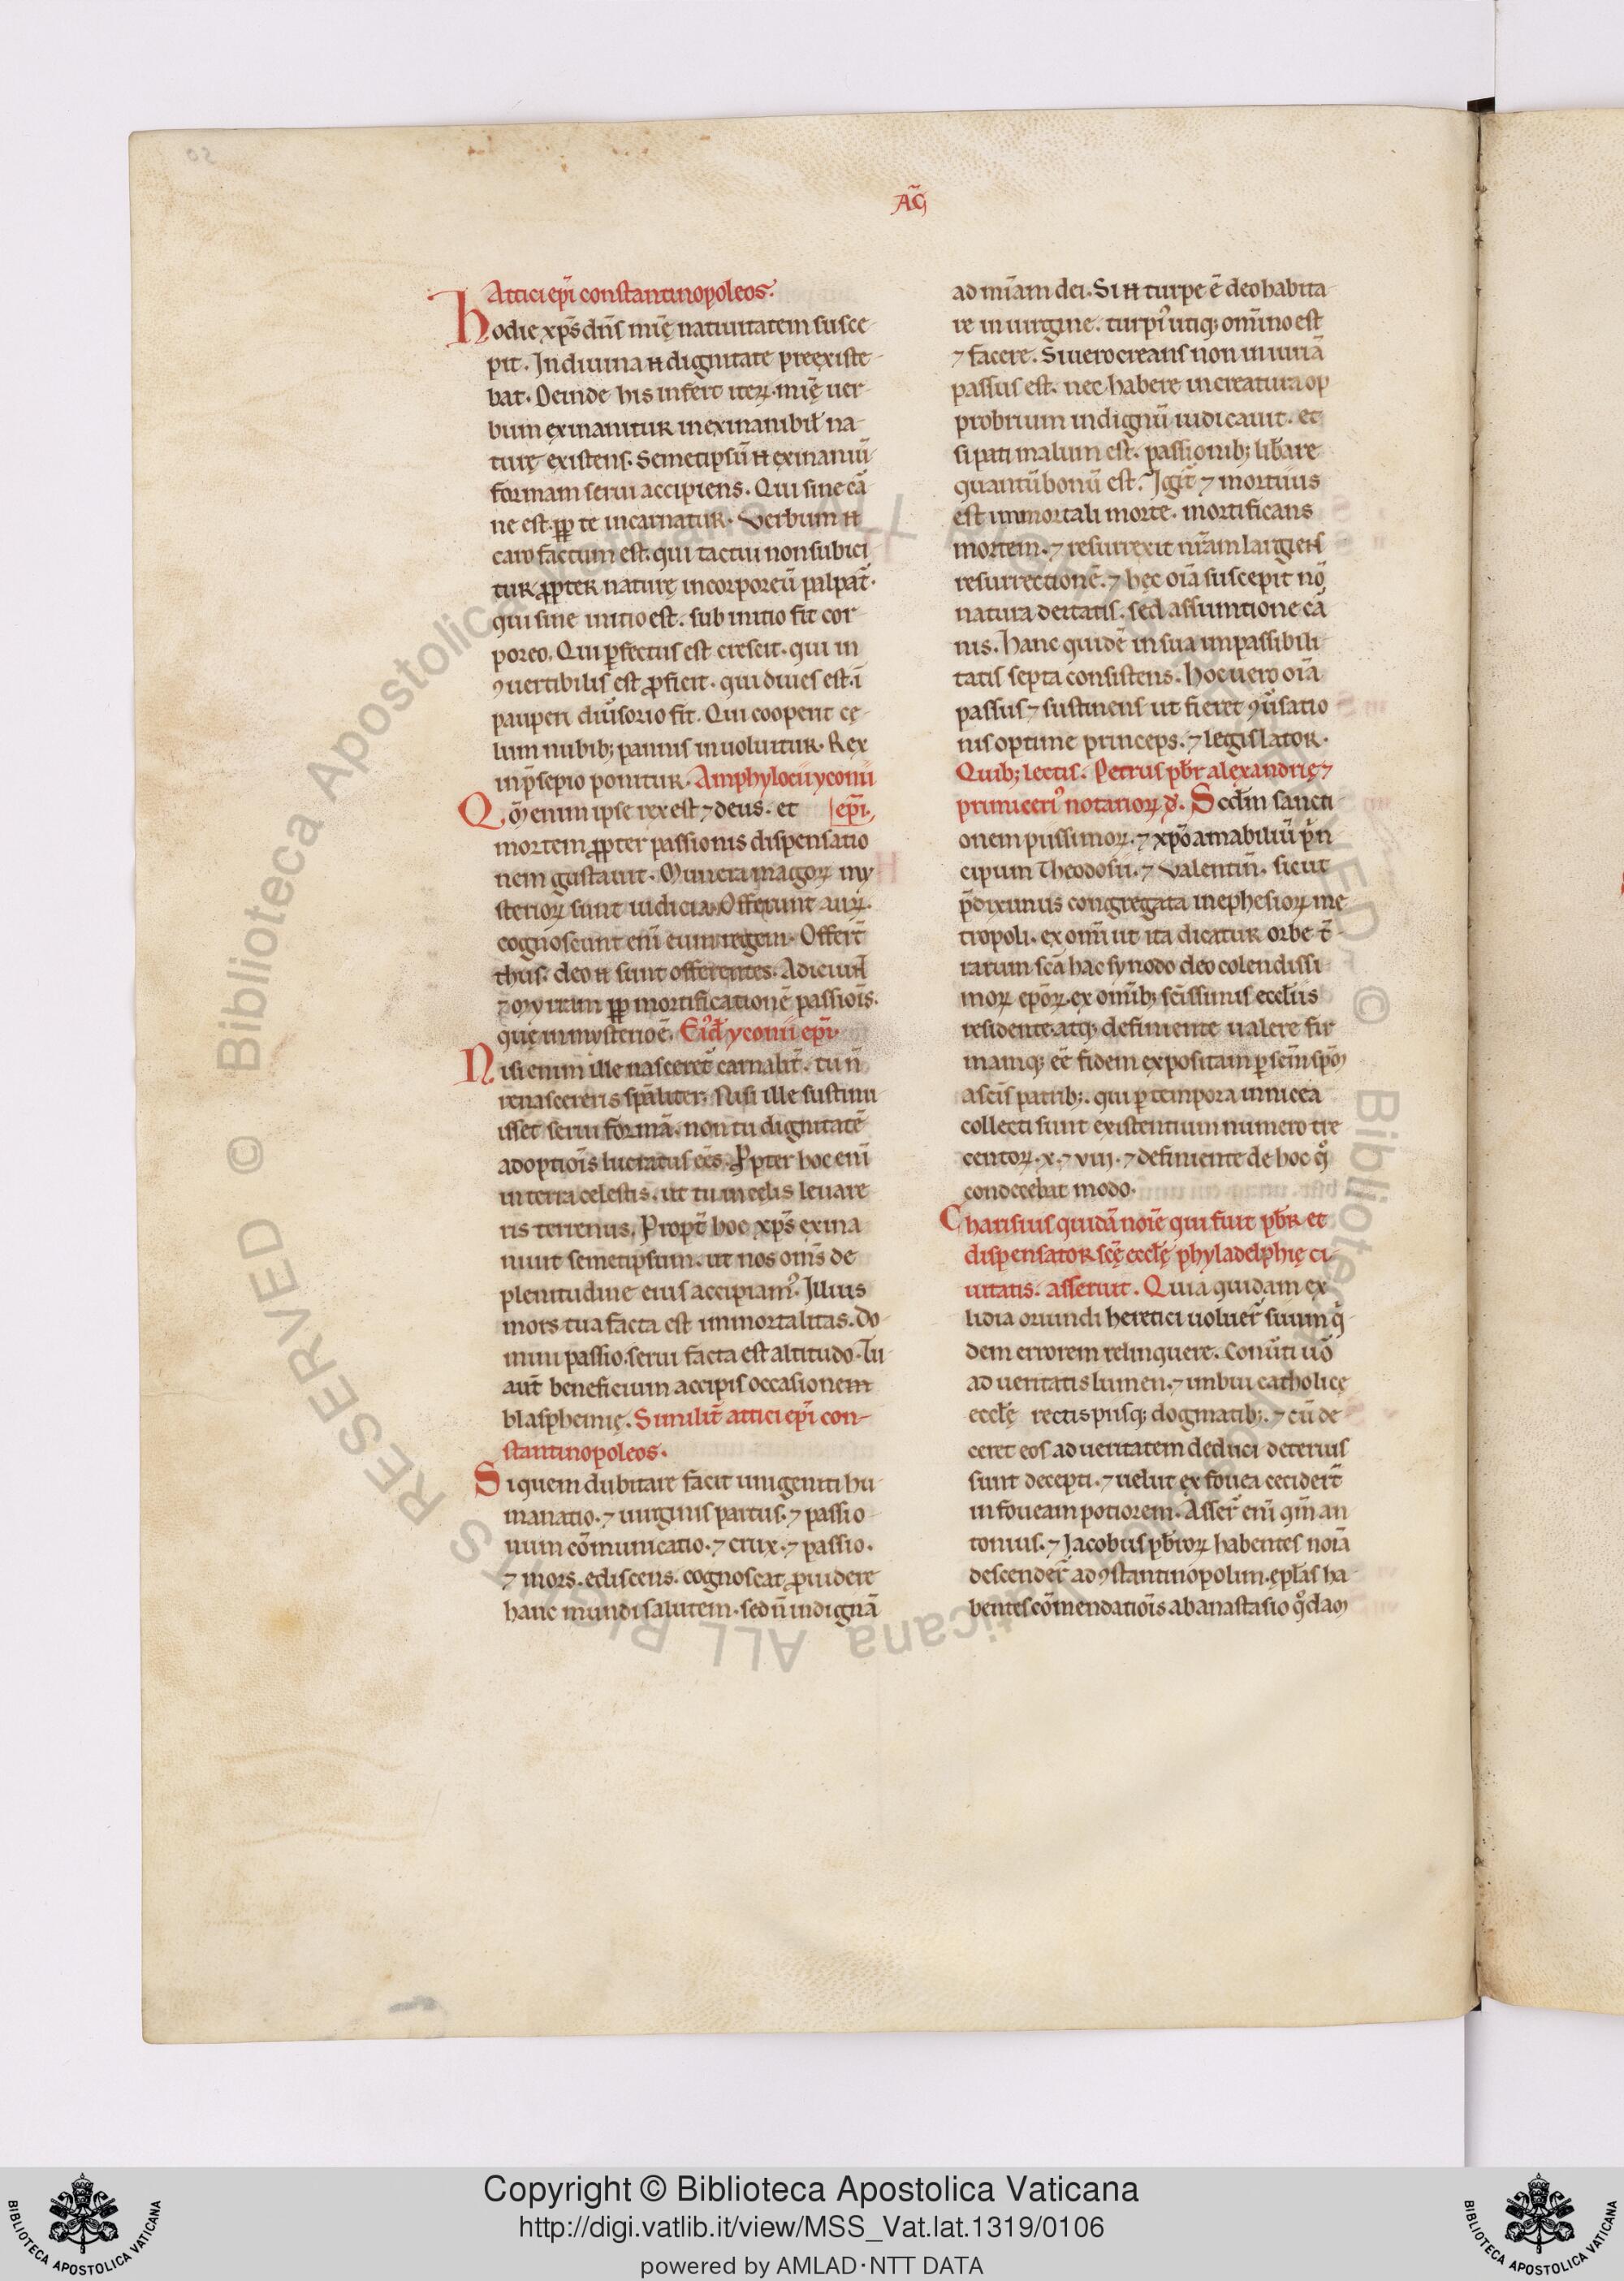 AC̄
Attici ep̄i constantinopoleos.
hodie xp̄s dn̄s mię natiuitatem susce-
pit. In diuina n̄ dignitate preexiste-
bat. Deinde his infert iteꝝ. mię uer-
bum exinanitur inexinanibil' na-
turę existens. Semetipsū n̄ exinaniū
formam serui accipiens. Qui sine cā
ne est. ꝓp te incarnatur. Verbum n̄
caro factum est. qui tactui non subici
tur ꝓpter naturę incorporeū palpat̄.
qui sine initio est. sub initio fit cor-
poreo. Qui ꝑfectus est crescit. qui in
ꝯuertibilis est ꝓficit. qui diues est. ī
pauperi diu̓sorio fit. Qui cooperit cę-
lum nubib; pannis inuoluitur. Rex
in p̄sepio ponitur. Amphylocii yconii
Qm̄ enim ipse rex est ⁊ deus. et ep̄i.
mortem ꝓpter passionis dispensatio
nem gustauit. Munera magoꝝ my
sterioꝝ sunt iudicia. Offerunt auꝝ.
cognoscunt enī eum regem. Offert̄
thus. deo n̄ sunt offerentes. Adiciunt
⁊ myrram ꝓp mortificationē passiōis.
quę in mysterio ē. Ei'd' yconii ep̄i.
Nisi enim ille nasceret̄ carnalit̄. tu n̄
renascereris sp̄aliter. Nisi ille sustinu
isset serui formā. non tu dignitatē
adoptiōis lucratus eēs. Ꝓpter hoc enī
in terra celestis. ut tu in celis leuare
ris terrenus. Propt̄ hoc xp̄s exina
niuit semetipsum. ut nos om̄s de
plenitudine eius accipiam'. Illius
mors tua facta est immortalitas. Do-
mini passio. serui facta est altitudo. Tu
aut̄ beneficium accipis occasionem
blasphemię. Similit̄ attici ep̄i con-
stantinopoleos.
Si quem dubitare facit unigeniti hu-
manatio. ⁊ uirginis partus. ⁊ passio-
num cōmunicatio. ⁊ crux. ⁊ passio.
⁊ mors. ediscens. cognoscat ꝓuidere
hanc mundi salutem. sed n̄ indignā
ad mīam dei. Si n̄ turpe ē deo habita-
re in uirgine. turpi' utiq; om̄ino est
⁊ facere. Si uero creans non iniuriā
passus est. nec habere in creatura op
probrium indignū iudicauit. et
si pati malum est. passionib; lib̄are
quantū bonū est. Igit̄ ⁊ mortuus
est immortali morte. mortificans
mortem. ⁊ resurrexit nr̄am largiens
resurrectionē. ⁊ hęc oīa suscepit nō
natura deitatis. sed assumtione cā
nis. Hanc quidē in sua impassibili-
tatis septa consistens. Hoc uero oīa
passus ⁊ sustinens ut fieret ꝯu̓satio
nis optime princeps. ⁊ legislator.
Quib; lectis. Petrus pb̄r alexandrię ⁊
primiceri' notarioꝝ d'. Scdm̄ sancti
onem piissimoꝝ. ⁊ xp̄o amabiliū p̄n
cipum Theodosii. ⁊ Valentin̄. sicut
p̄diximus congregata in ephesioꝝ me
tropoli. ex omī ut ita dicatur orbe t̄-
rarum scā hac synodo deo colendissi-
moꝝ ep̄oꝝ. ex omīb; sc̄issimis eccl'iis
residente. atq; definiente ualere fir
mamq; eē fidem expositam ꝑ scm̄ spm̄
a scīs patrib;. qui ꝑ tempora in nicea
collecti sunt existentium numero tre
centoꝝ. x. ⁊ viij. ⁊ definiente de hoc q̊
condecebat modo.
Charisius quidā noīe qui fuit pb̄r et
dispensator scę eccl'ę phyladelphię ci-
uitatis. asseruit. Quia quidam ex
lidia oriundi heretici uoluer̄ suum q̄-
dem errorem relinquere. Conu̓ti uō
ad ueritatis lumen. ⁊ imbui catholicę
eccl'ę rectis piisq; dogmatib;. ⁊ cū de-
ceret eos ad ueritatem deduci deterius
sunt decepti. ⁊ uelut ex fouea cecidert̄
in foueam potiorem. Asser̄ enī qm̄ an
tonius. ⁊ Jacobus pb̄roꝝ habentes noīa
descender̄ ad ꝯstantinopolim. epl'as ha-
bentes cōmendatiōis ab anastasio q̊dam
Copyright © Biblioteca Apostolica Vaticana
http://digi.vatlib.it/view/MSS_Vat.lat.1319/0106
powered by AMLAD·NTT DATA
BIBLIOTECA APOSTOLICA VATICANA
BIBLIOTECA APOSTOLICA VATICANA